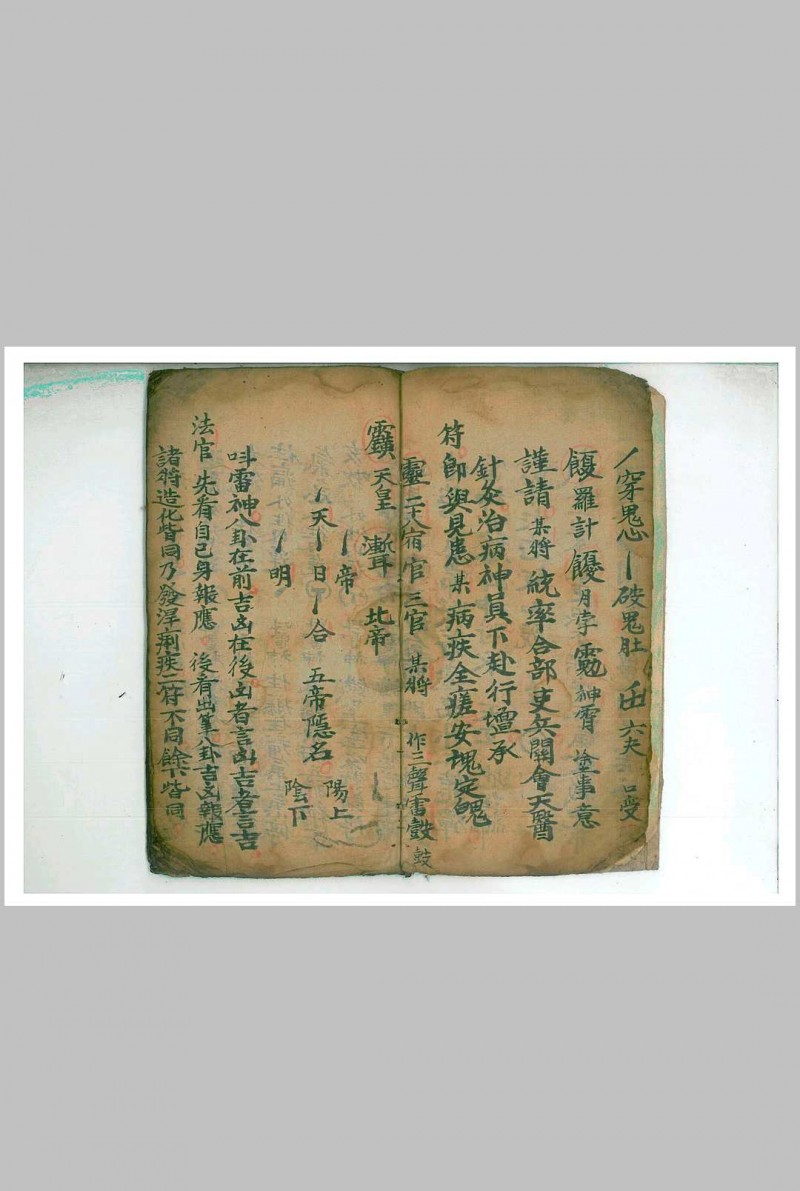 丿穿鬼心丨破鬼肚 六夫
羅計 月孛 神霄 塗事意
謹請某將統率合部吏兵關會天醫
針灸治病神員下赴行壇承
符即與見患某病疾全瘥安塊定魄
靈二十八宿官三官某將 作三聲雷鼓 鼓
天皇 北帝
丨帝
丿天丨日丨合 五帝隱名 陽上
丿明 陰下
呌雷神八卦在前吉凶在後凶者言凶吉者言吉
法官先看自己身報應 後看出筆八卦吉凶報應
諸將造化皆同乃發淂痢疾二符不同餘下皆同